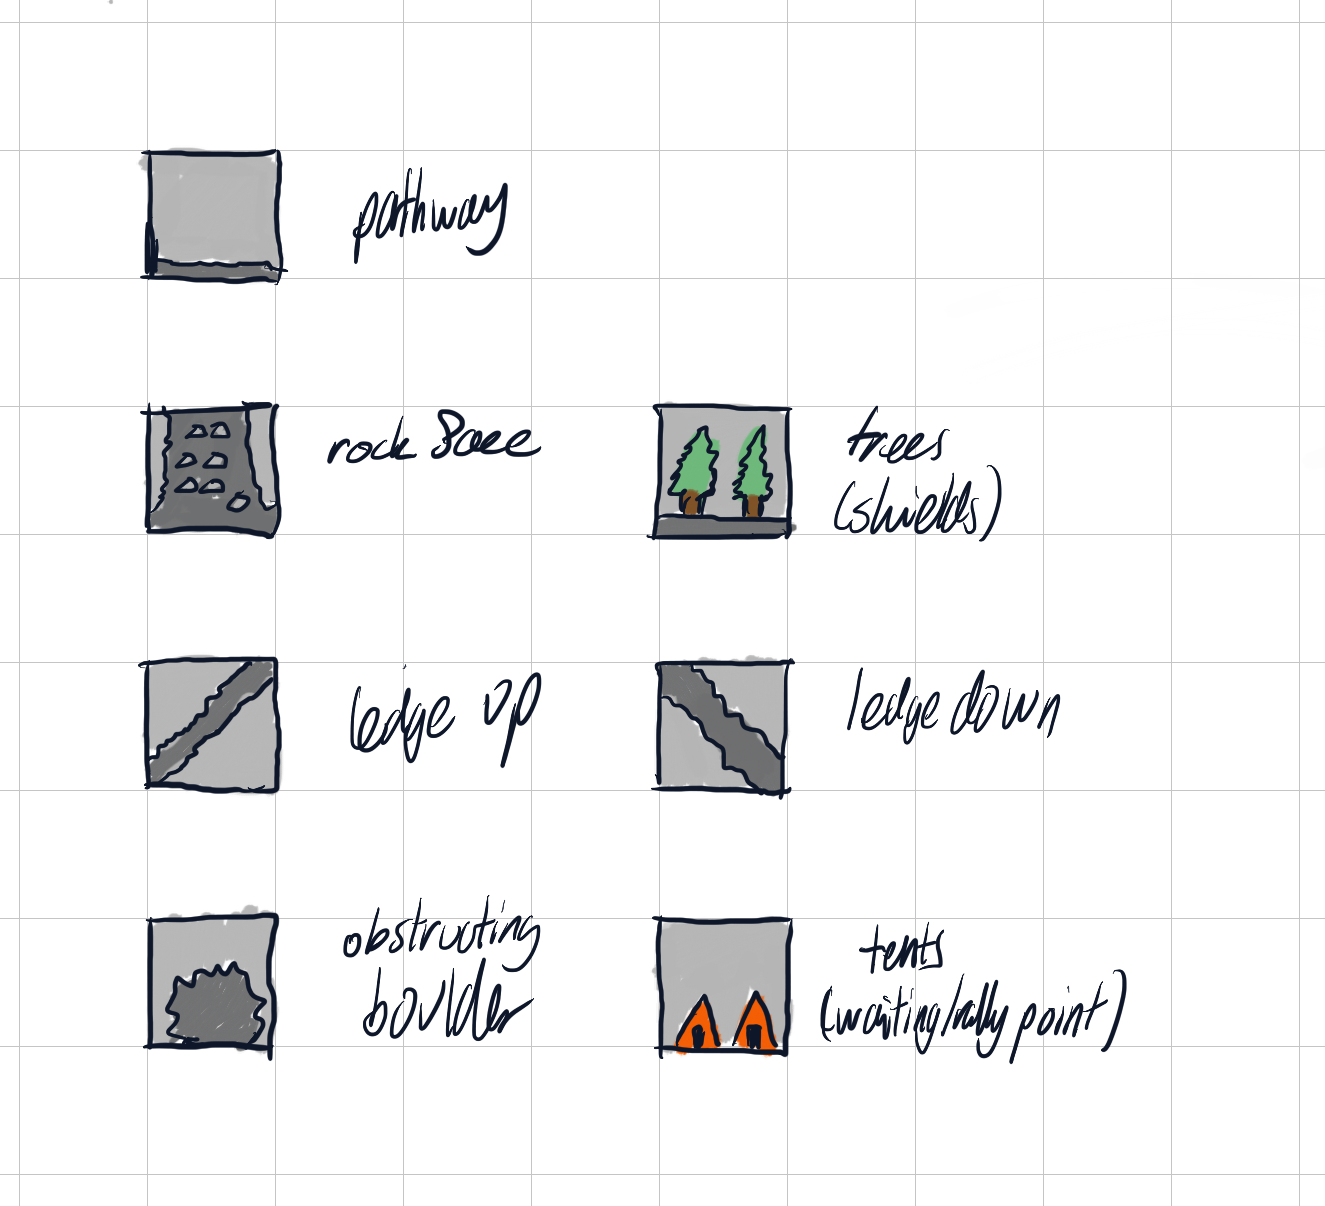 pathway
rock face
trees
(shields)
ledge up
ledge down
obstructing
boulder
tents
(waiting/rally point)